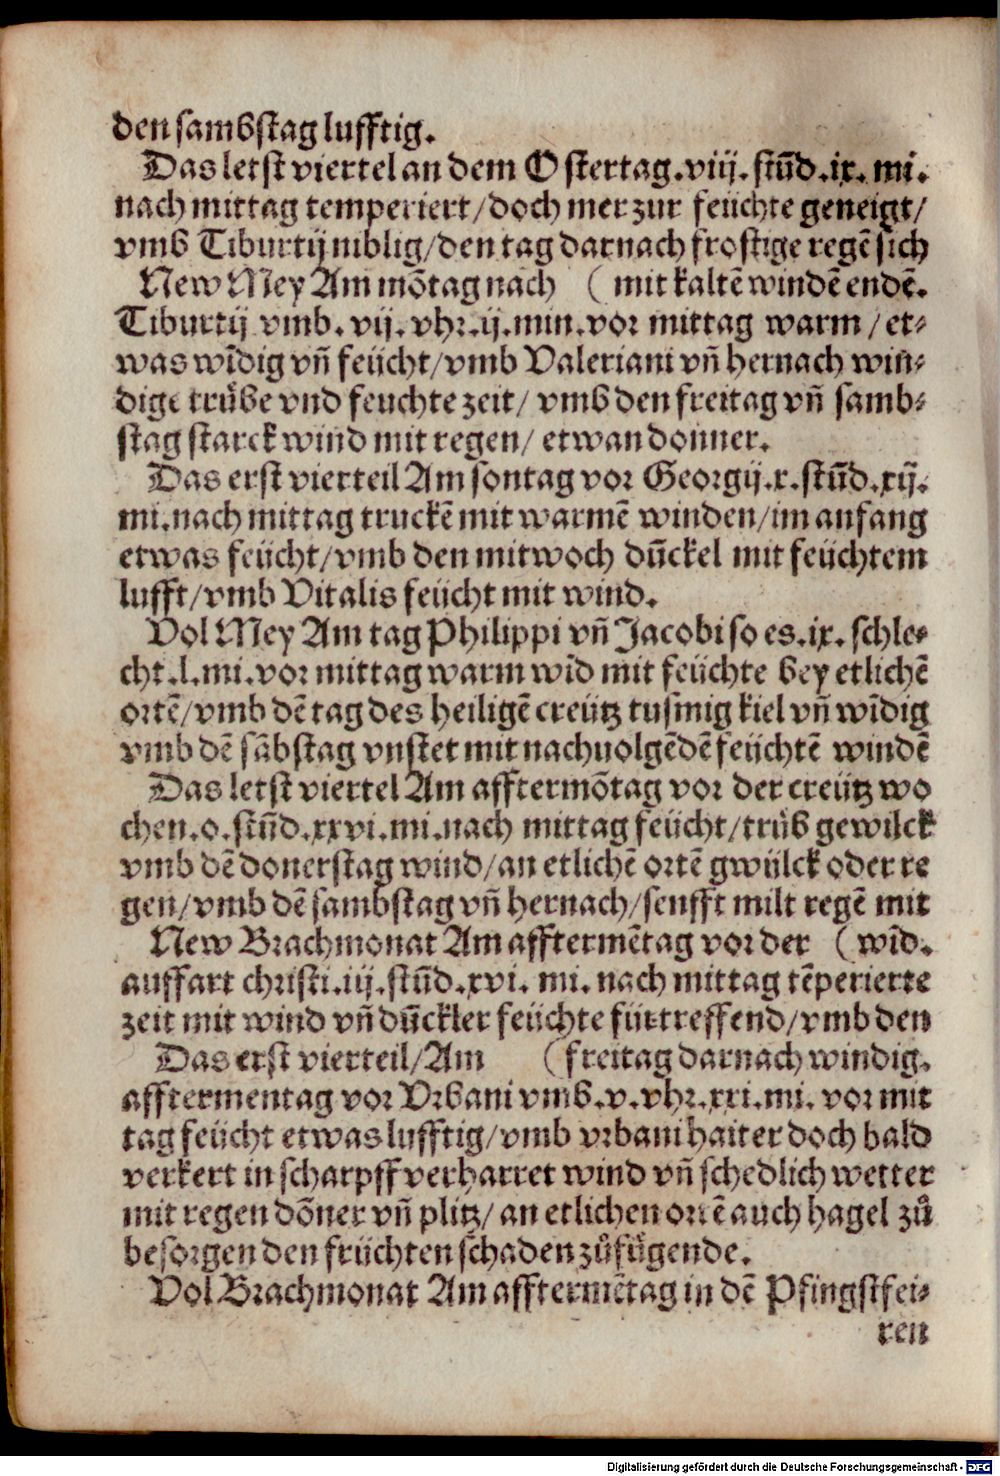 den sambstag lufftig.
Das letst viertel an dem Ostertag.viij.stūd.ix.mi.
nach mittag temperiert/doch mer zur feüchte geneigt/
vmb Tiburtij niblig/den tag darnach frostige regē sich
New Mey Am mōtag nach ( mit kaltē windē endē.
Tiburtij vmb.vij.vhr.ij.min.vor mittag warm/et⸗
was wīdig vñ feücht/vmb Valeriani vñ hernach win⸗
dige trübe vnd feuchte zeit/ vmb den freitag vñ samb⸗
stag starck wind mit regen/ etwan donner.
Das erst vierteil Am sontag vor Georgij.x.stūd.xij.
mi.nach mittag truckē mit warmē winden/im anfang
etwas feücht/vmb den mitwoch dūckel mit feüchtem
lufft/vmb Vitalis feücht mit wind.
Vol Mey Am tag Philippi vñ Jacobi so es.ix.schle⸗
cht.l.mi.vor mittag warm wīd mit feüchte bey etlichē
ortē/vmb dē tag des heiligē creütz tusmig kiel vñ wīdig
vmb dē sābstag vnstet mit nachuolgēdē feüchtē windē
Das letst viertel Am afftermōtag vor der creütz wo
chen.o.stūd.xxvi.mi.nach mittag feücht/trüb gewilck
vmb dē donerstag wind/an etlichē ortē gwülck oder re
gen/vmb dē sambstag vñ hernach/senfft milt regē mit
New Brachmonat Am afftermētag vor der ( wīd.
auffart christi.iij.stūd.xvi. mi. nach mittag tēperierte
zeit mit wind vñ dūckler feüchte fürtreffend/vmb den
Das erst vierteil/Am ( freitag darnach windig.
afftermentag vor Vrbani vmb.v.vhr.xxi.mi. vor mit
tag feücht etwas lufftig/vmb vrbani haiter doch bald
verkert in scharpff verharret wind vñ schedlich wetter
mit regen dōner vñ plitz/ an etlichen ortē auch hagel zů
besorgen den früchten schaden zůfůgende.
Vol Brachmonat Am afftermētag in dē Pfingstfei⸗
ren
Digitalisierung gefördert durch die Deutsche Forschungsgemeinschaft - DFG